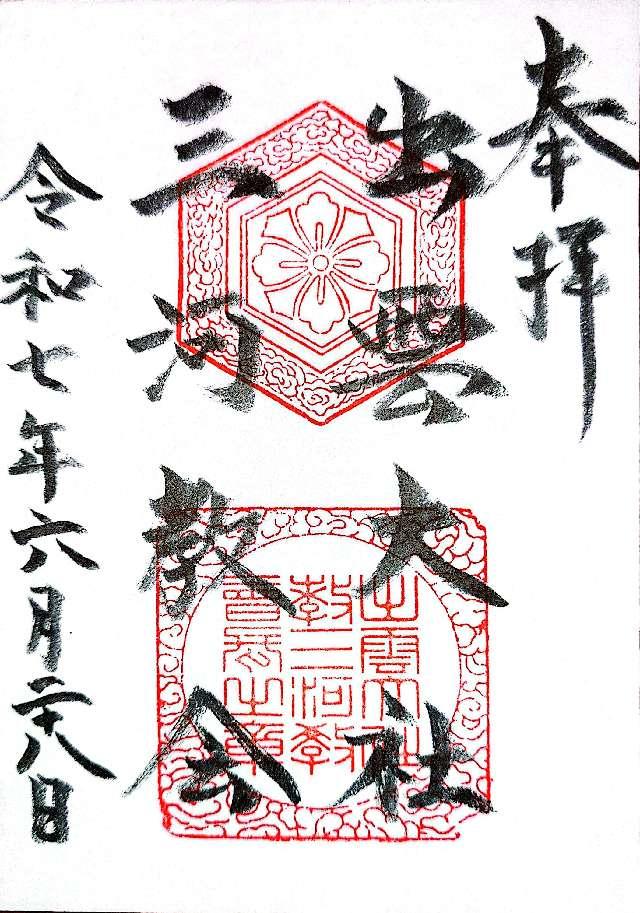 奉拝
出雲大社
三河教会
令和七年六月二十八日
出雲大社
教三河教
會璽之章